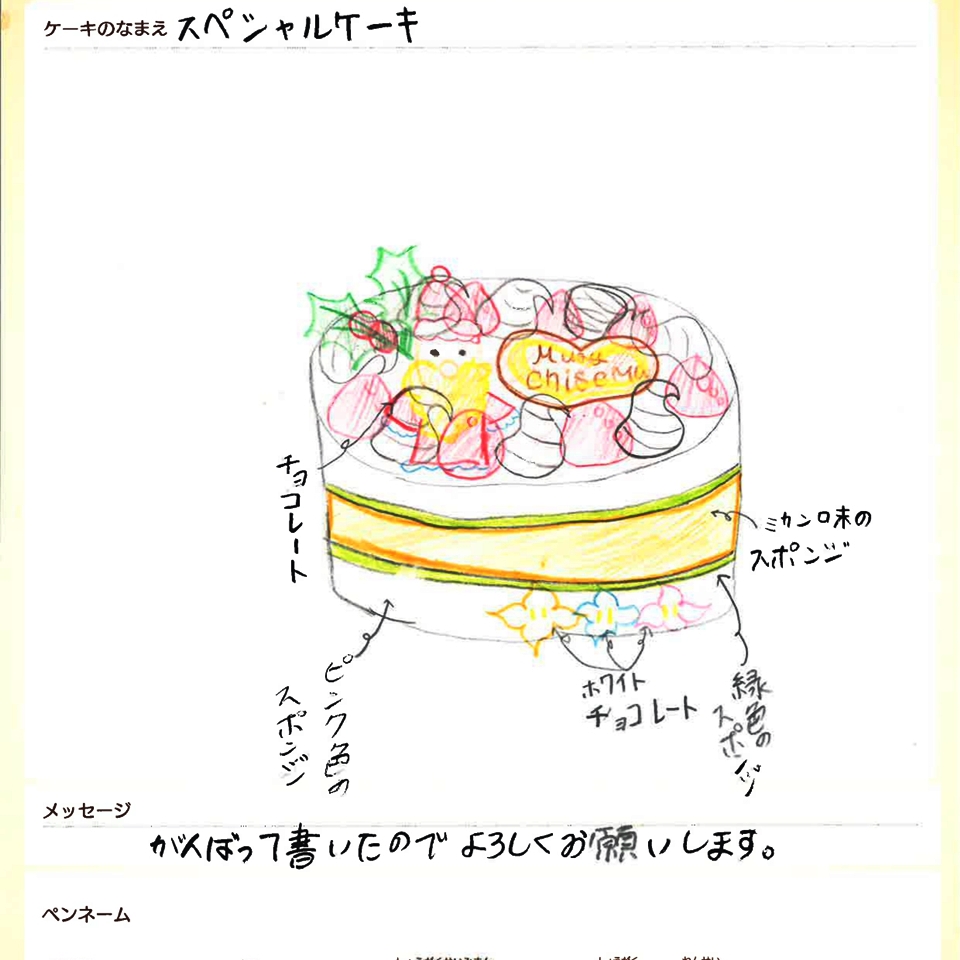 ケーキのなまえ スペシャルケーキ
Chisemu
チョコレート
ミカン味の
スポンジ
ピンク色の
スポンジ
ホワイト
チョコレート
緑色の
スポンジ
メッセージ
がんばって書いたのでよろしくお願いします。
ペンネーム